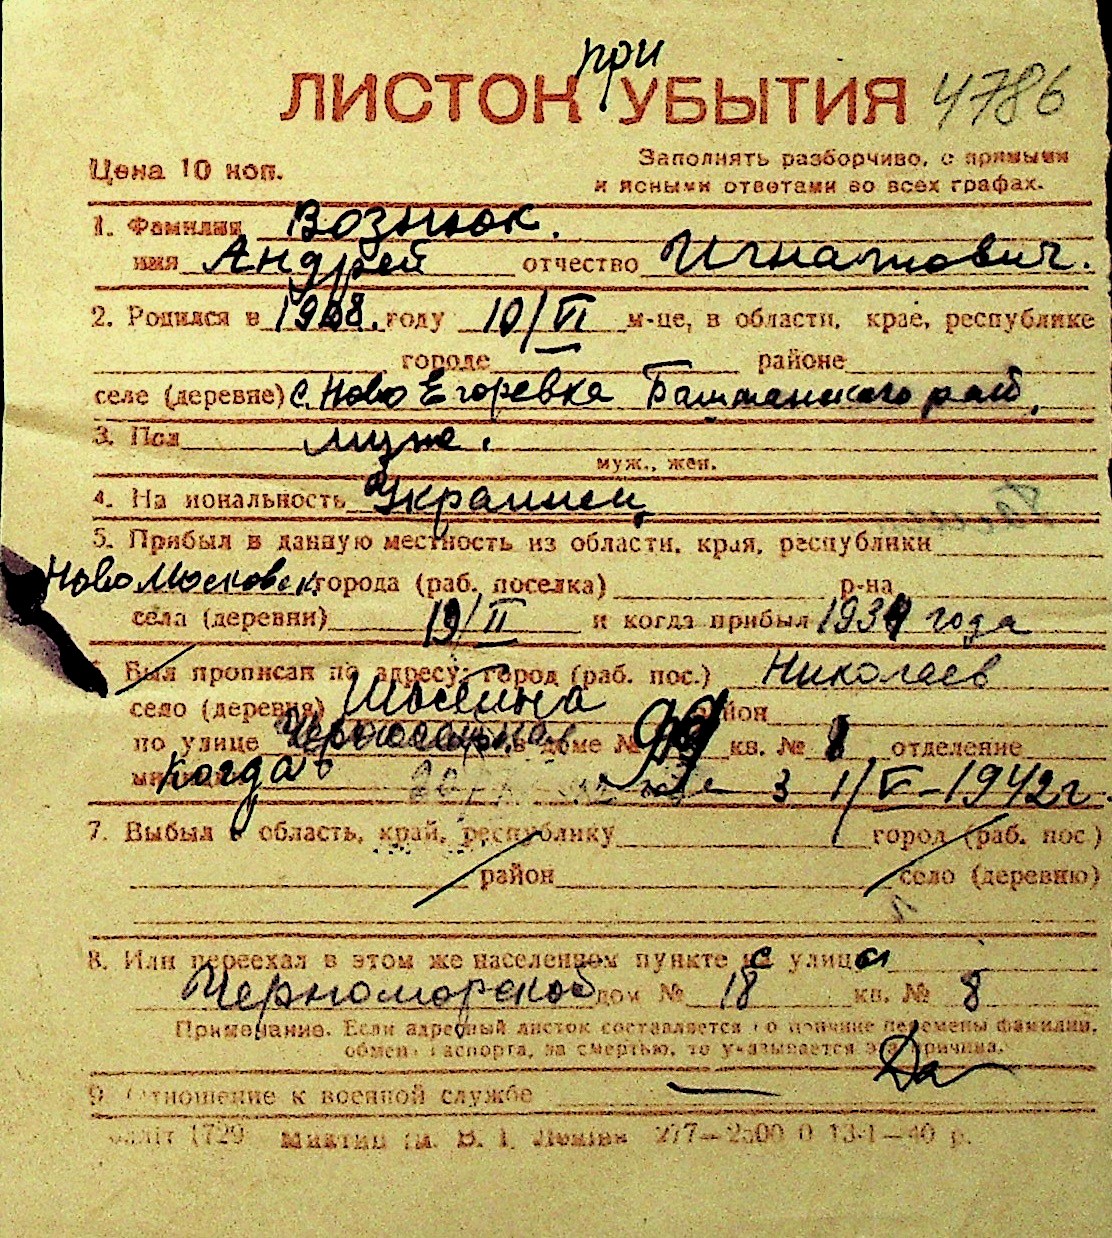 при
ЛИСТОК УБЫТИЯ 4786
Цена 10 коп.
Заполнять разборчиво, с прямыми
и ясными ответами во всех графах.
1. Фамилия Вознюк.
имя Андрей отчество Игнатович.
2. Родился в 1908. году 10/VI м-це, в области, крае, республике
городе районе
селе (деревне) с. Ново Егоревка Баштанского рай.
3. Пол муж.
муж., жен.
4. На иональность Украинец
5. Прибыл в данную местность из области, края, республики
Ново Московск города (раб. поселка) р-на
села (деревни) 19/II и когда прибыл 1934 года
Был прописан по адресу: город (раб. пос.) Николаев
село (деревня) район
по улице в доме № кв. № отделение
когда 3 1/V-1942 г
7. Выбыл в область, край, республику город (раб. пос.)
район село (деревню)
8. Или переехал в этом же населенном пункте с улицы
Черноморской дом № 18 кв. № 8
Примечание. Если адресный листок составляется по причине перемены фамилии,
обмена паспорта, за смертью, то указывается эта причина.
Да
9. Отношение к военной службе —
1729 277—2500 0 13-I—40 р.